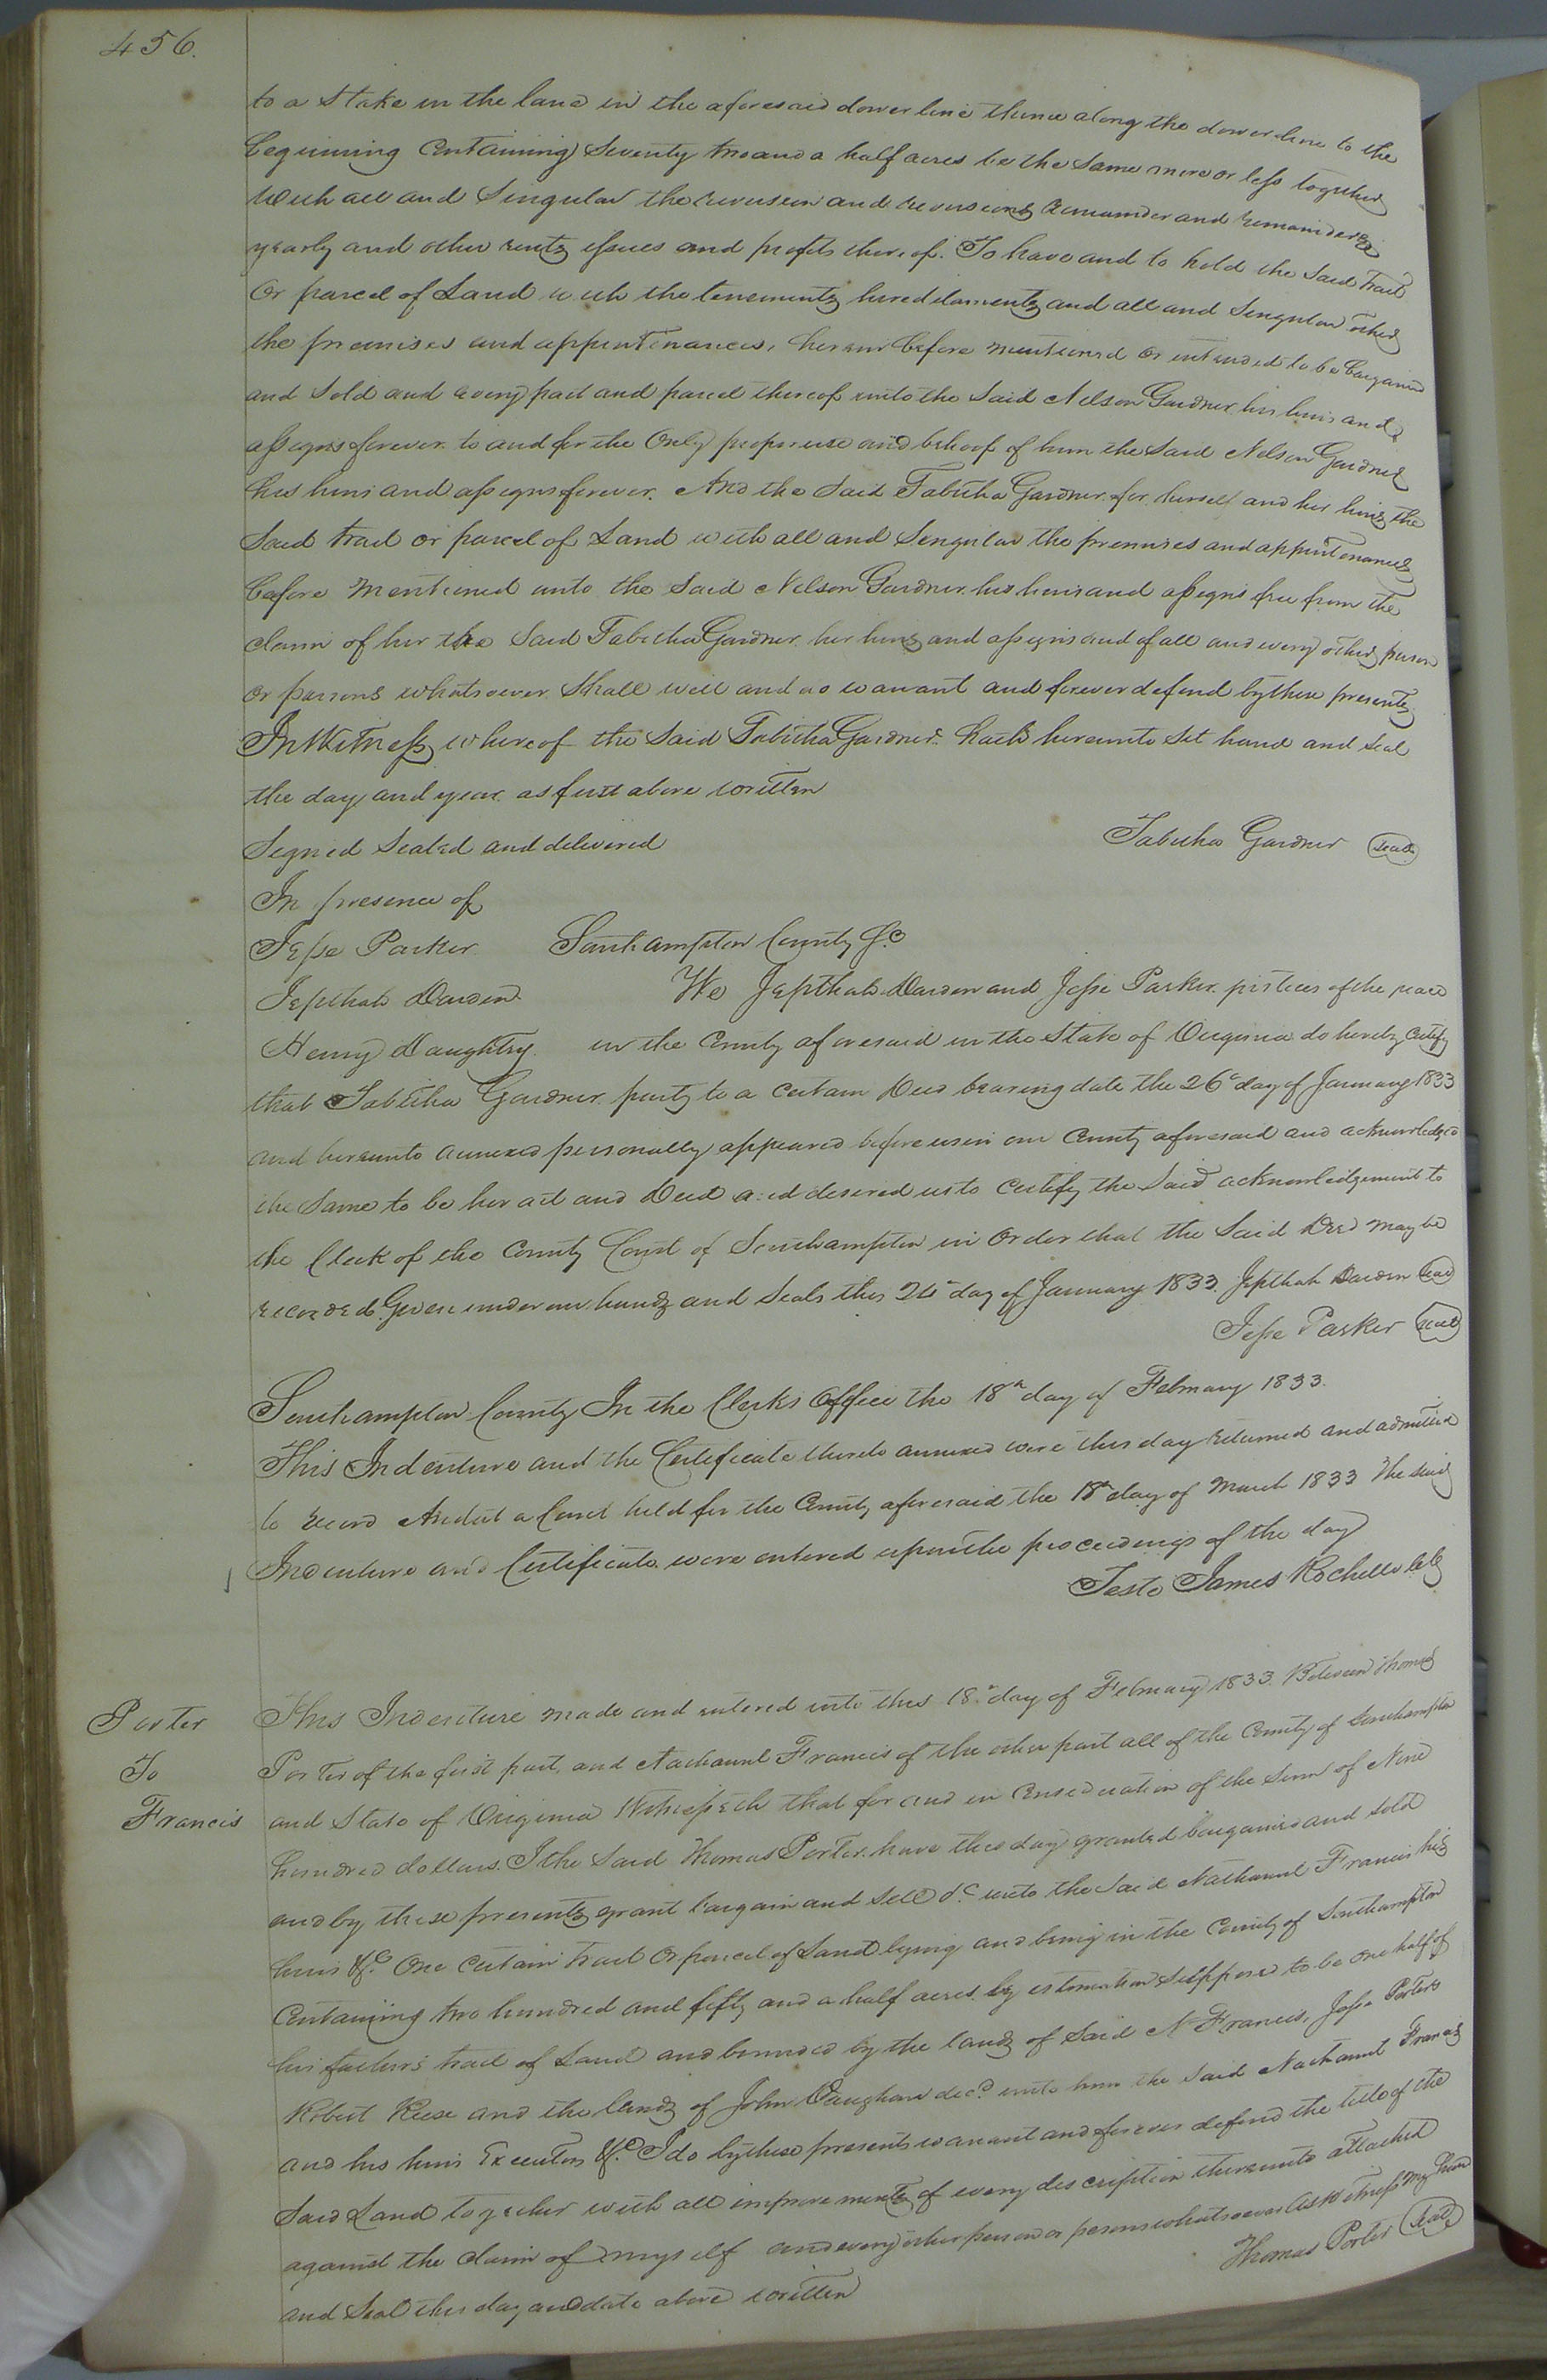 456.
to a Stake in the land in the aforesaid dower line thence along the dower line to the
beginning Containing Seventy two and a half acres be the Same more or less together
With all and Singular the reversion and reversions remainder and remainders
yearly and other rents issues and profits thereof. To have and to hold the Said Tract
Or parcel of Land with the tenements hereditaments and all and Singular other
the premises and appurtenances, herein before mentioned or intended to be bargained
and Sold and every part and parcel thereof unto the Said Nelson Gardner his heirs and
assigns forever. to and for the Only proper use and behoof of him the Said Nelson Gardner
his heirs and assigns forever. And the Said Tabitha Gardner for herself and her heirs the
Said tract or parcel of Land with all and Singular the premises and appurtenances
before mentioned unto the Said Nelson Gardner his heirs and assigns free from the
claim of her the Said Tabitha Gardner her heirs and assigns and of all and every other person
or persons whatsoever Shall will and do warrant and forever defend by these presents
In Witness whereof the Said Tabitha Gardner hath hereunto Set hand and Seal
the day and year as first above written
Signed Sealed and delivered Tabitha Gardner Seal
In presence of
Jesse Parker Southampton County Sc
Jepthah Darden We Jepthah Darden and Jesse Parker justices of the peace
Henry Daughtry in the County aforesaid in the State of Virginia do hereby certify
that Tabitha Gardner party to a certain Deed bearing date the 26th day of January 1833
and hereunto annexed personally appeared before us in our County aforesaid and acknowledged
the Same to be her act and Deed and desired us to certify the Said acknowledgement to
the Clerk of the County Court of Southampton in Order that the Said Deed may be
recorded. Given under our hands and Seals this day of January 1833. Jepthah Darden Seal
Jesse Parker Seal
Southampton County In the Clerks Office the 18th day of February 1833.
This Indenture and the Certificate thereto annexed were this day returned and admitted
to record And at a Court held for the County aforesaid the 18th day of March 1833 The said
Indenture and Certificate were entered upon the proceedings of the day
Teste James Rochelle
Porter
To
Francis
This Indenture made and entered into this 18th day of February 1833. Between Thomas
Porter of the first part, and Nathaniel Francis of the other part all of the County of Southampton
and State of Virginia Witnesseth that for and in Consideration of the Sum of Nine
hundred dollars. I the Said Thomas Porter have this day granted bargained and sold
and by these presents grant bargain and Sell &c unto the Said Nathaniel Francis his
heirs &c One Certain tract Or parcel of Land lying and being in the County of Southampton
Containing two hundred and fifty and a half acres by estimation Supposed to be one half of
his father's tract of Land and bounded by the lands of Said N Francis, Jesse Porter
Robert Reese and the lands of John Vaughan decd unto him the Said Nathaniel Francis
and his heirs Executors &c. I do by these presents warrant and forever defend the title of the
Said Land together with all improvements of every description thereunto attached
against the claim of myself and every other person or persons whatsoever As Witness My hand
and Seal this day and date above written Thomas Porter Seal